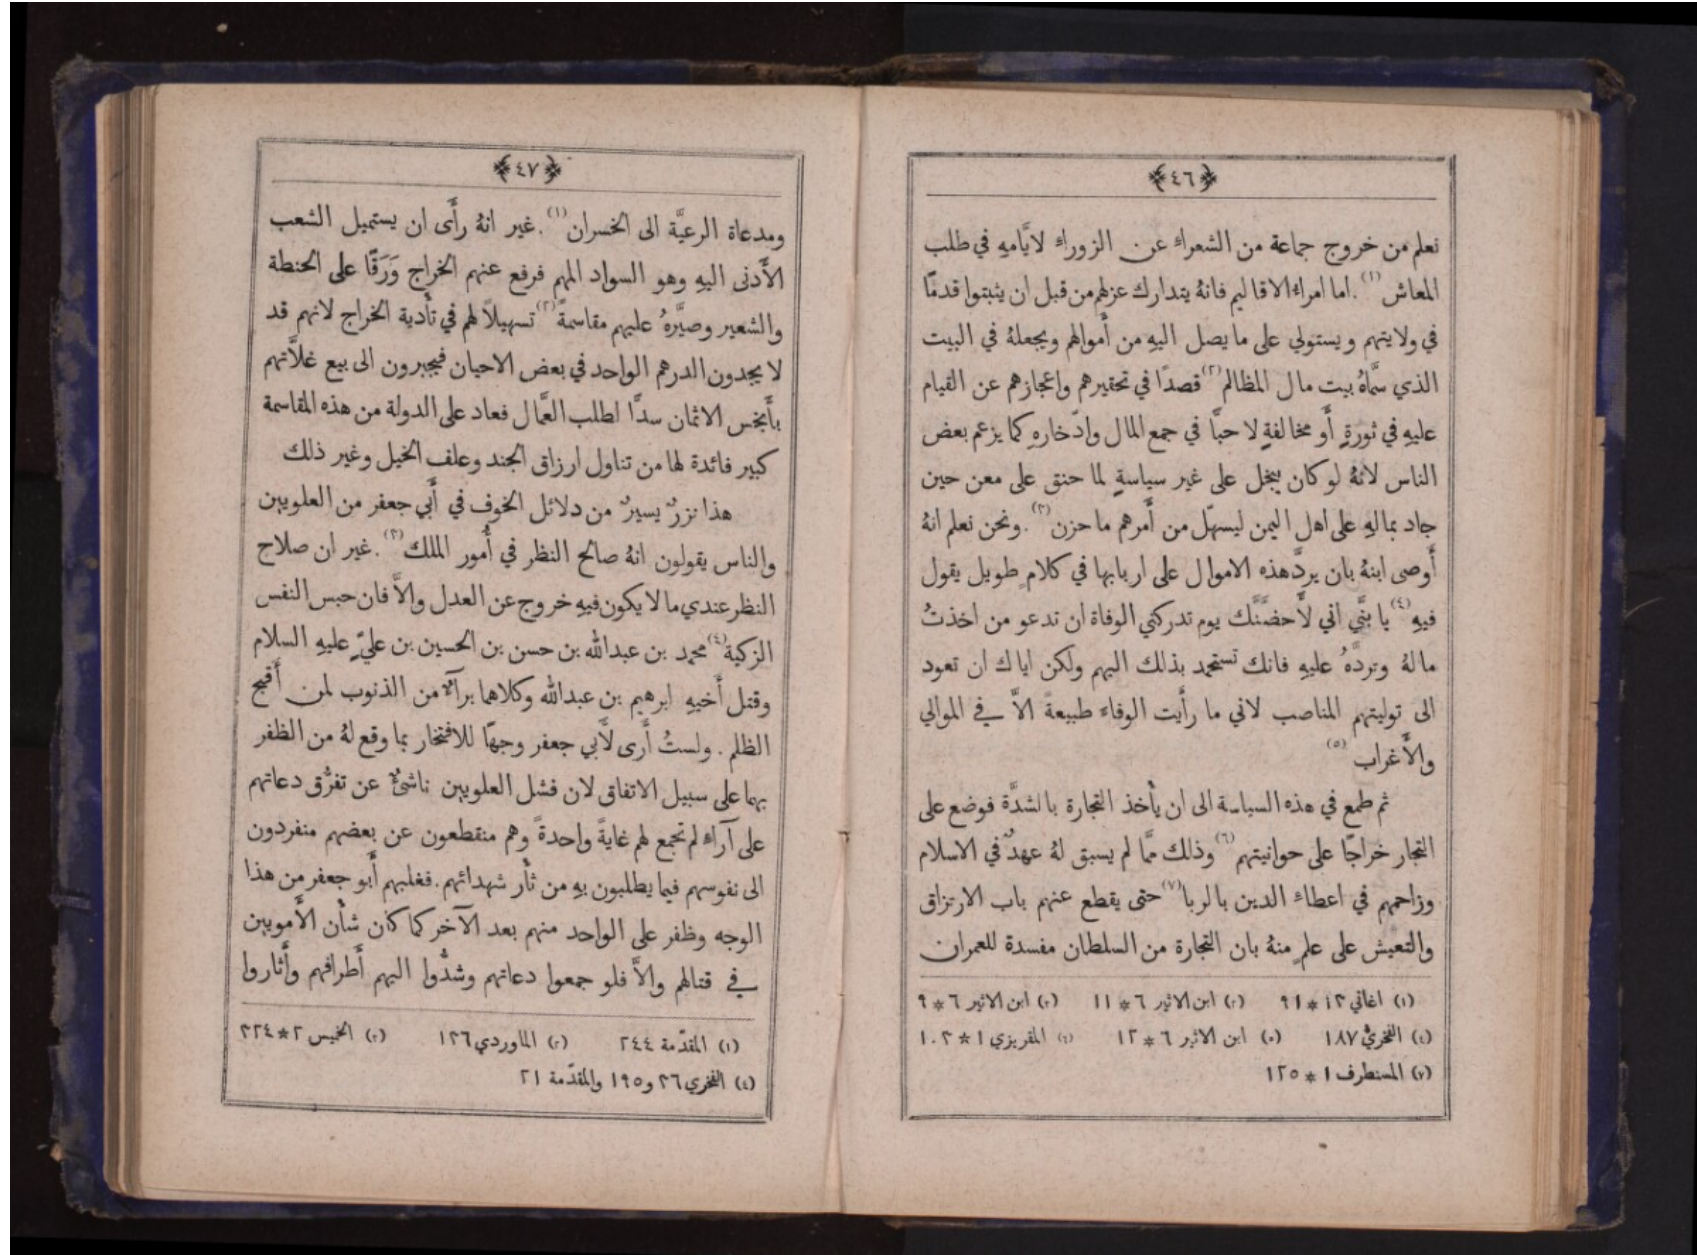 ﴿٤٦﴾
نعلم من خروج جماعة من الشعراء عن الزوراء لايَّامهِ في طلب
المعاش (١). اما امراء الاقاليم فانهُ يتدارك عزلهم من قبل ان يثبتوا قدمًا
في ولايتهم ويستولي على ما يصل اليهِ من أَموالهم ويجعلهُ في البيت
الذي سمَّاهُ بيت مال المظالم (٢) قصدًا في تحقيرهم واعجازهم عن القيام
عليهِ في ثورةٍ أَو مخالفةٍ لا حبًّا في جمع المال وادّخارهِ كما يزعم بعض
الناس لانهُ لو كان يبخل على غير سياسةٍ لما حنق على معن حين
جاد بمالهِ على اهل اليمن ليسهّل من أَمرهم ما حزن (٣). ونحن نعلم انهُ
أَوصى ابنهُ بان يردَّ هذه الاموال على اربابها في كلامٍ طويل يقول
فيهِ (٤) يا بنَّي اني لأَحضَّنَّك يوم تدركني الوفاة ان تدعو من اخذتُ
مالهُ وتردَّهُ عليهِ فانك تستحمد بذلك اليهم ولكن اياك ان تعود
الى توليتهم المناصب لاني ما رأَيت الوفاء طبيعةً الاَّ في الموالي
والأَغراب (٥)
ثم طمع في هذه السياسة الى ان يأْخذ التجارة بالشدَّة فوضع على
التجار خراجًا على حوانيتهم (٦) وذلك ممَّا لم يسبق لهُ عهدٌ في الاسلام
وزاحمهم في اعطاء الدين بالربا (٧) حتى يقطع عنهم باب الارتزاق
والتعيش على علمٍ منهُ بان التجارة من السلطان مفسدة للعمران
(١) اغاني ١٢*٩١ (٢) ابن الاثير ٦*١١ (٣) ابن الاثير ٦*٩
(٤) الفخريُّ ١٨٧ (٥) ابن الاثير ٦*١٢ (٦) المقريزي ١*١٠٣
(٧) المستطرف ١*١٢٥
﴿٤٧﴾
ومدعاة الرعيَّة الى الخسران (١). غير انهُ رأَى ان يستميل الشعب
الأَدنى اليهِ وهو السواد المهم فرفع عنهم الخراج وَرَقًا على الحنطة
والشعير وصيَّرهُ عليهم مقاسمةً (٢) تسهيلاً لهم في تأْدية الخراج لانهم قد
لا يجدون الدرهم الواحد في بعض الاحيان فيجبرون الى بيع غلاَّتهم
بأَبخس الاثمان سدًّا لطلب العمَّال فعاد على الدولة من هذه المقاسمة
كبير فائدة لها من تناول ارزاق الجند وعلف الخيل وغير ذلك
هذا نزرٌ يسيرٌ من دلائل الخوف في أَبي جعفر من العلويين
والناس يقولون انهُ صالح النظر في أُمور الملك (٣). غير ان صلاح
النظر عندي ما لا يكون فيهِ خروج عن العدل والاَّ فان حبس النفس
الزكية (٤) محمد بن عبدالله بن حسن بن الحسين بن عليٍّ عليهِ السلام
وقتل أَخيهِ ابرهيم بن عبدالله وكلاهما برآءٌ من الذنوب لمن أَقبح
الظلم. ولستُ أَرى لأَبي جعفر وجهًا للافتخار بما وقع لهُ من الظفر
بهما على سبيل الاتفاق لان فشل العلويين ناشئٌ عن تفرُّق دعاتهم
على آراءٍ لم تجمع لهم غايةً واحدةً وهم منقطعون عن بعضهم منفردون
الى نفوسهم فيما يطلبون بهِ من ثأْر شهدائهم. فغلبهم أَبو جعفر من هذا
الوجه وظفر على الواحد منهم بعد الآخر كما كان شأْن الأَمويين
في قتالهم والاَّ فلو جمعوا دعاتهم وشدُّوا اليهم أَطرافهم وأَثاروا
(١) المقدّمة ٢٤٤ (٢) الماوردي ١٣٦ (٣) الخميس ٢*٣٢٤
(٤) الفخري ٢٦ و١٩٥ والمقدّمة ٢١